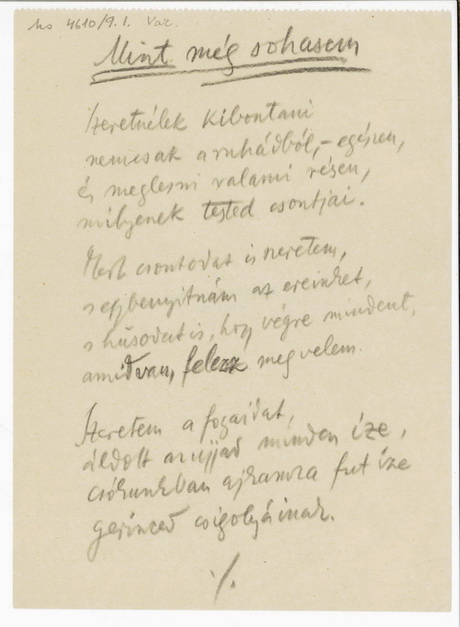 Ms 4610/9.1. Vaz.
Mint még sohasem
Szeretnélek kibontani
nemcsak a ruhádból, – egészen,
és meglesni valami résen,
milyenek tested csontjai.
Mert csontodat is szeretem,
s egybenyitnám az ereinket,
s húsodat is, hogy végre mindent,
amid van, felezz meg velem.
Szeretem a fogaidat,
áldott az ujjad minden íze,
csókunkban ajkamra fut íze
gerinced csigolyáinak.
./.